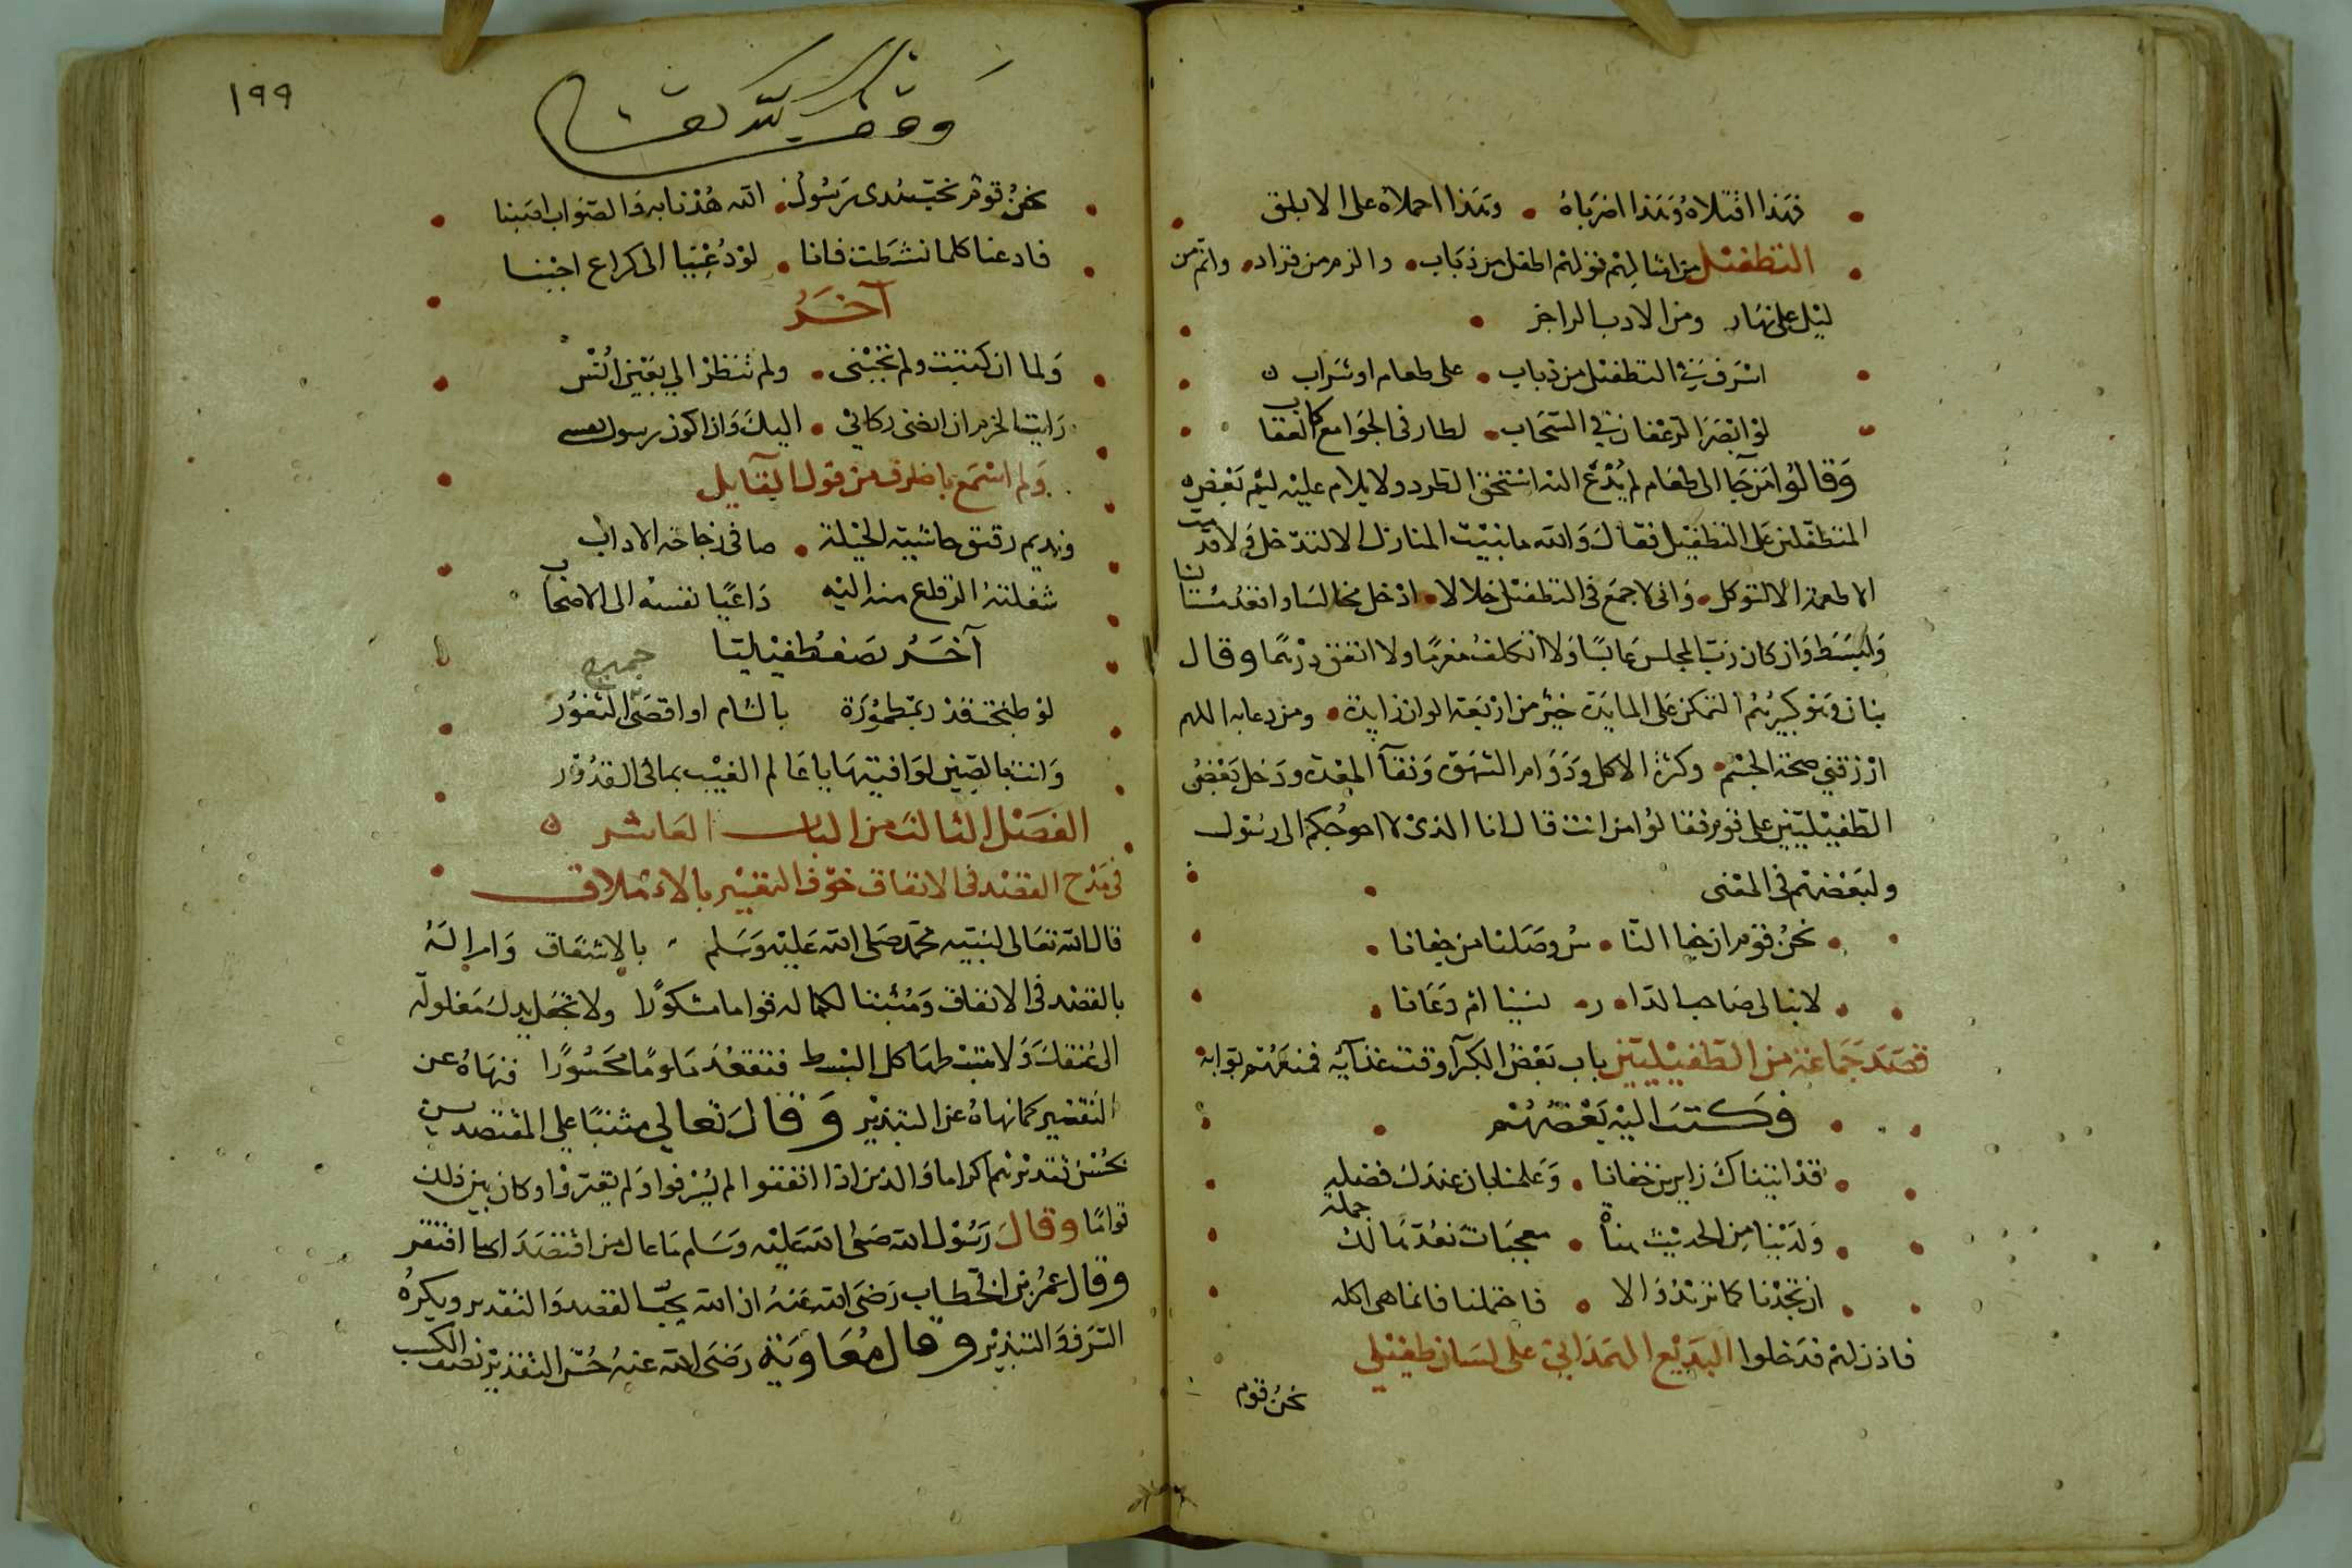 فبهذا اقتلاه وبهذا اضرباه وبهذا احملاه على الابلق
التطفيل من امثالهم قولهم اطفل من ذباب والزم من قراد وانم من
ليل على نهار ومن الادب الراجز
اشرف في التطفيل من ذباب على طعام او شراب
لو ابصر الرغفان في السحاب لطار في الجو مع كالعقاب
وقالوا من جا الى طعام لم يدع اليه استحق الطرد ولا يلام عليه ليم بعض
المتطفلين على التطفيل فقال والله ما بنيت المنازل الا لتدخل ولا قدمت
الاطعمة الا لتوكل وانى لاجمع فى التطفيل خلالا ادخل مجالسا واقعد مستانسا
وانبسط وان كان رب المجلس عابسا ولا اتكلف مغرما ولا انفق درهما وقال
بنان وهو كبيرهم التمكن على المايدة خير من اربعة الوان زايدة ومن دعايه اللهم
ارزقني صحة الجسم وكثرة الاكل ودوام الشهوة ونقآ المعدة ودخل بعض
الطفيليين على قوم فقالوا من انت قال انا الذى لا احوجكم الى رسول
ولبعضهم في المعنى
نحن قوم ان جفا النا س وصلنا من جفانا
لا نبالى صاحب الدا ر نسينا ام دعانا
قصد جماعة من الطفيليين باب بعض الكبرآ وقت غذآيه فمنعهم بوابه
فكتب اليه بعضهم
قد اتيناك زايرين خفافا وعلمنا بان عندك فضله
ولدينا من الحديث هناة معجبات نعدها لك جمله
ان تجدنا كما تريد والا فاحتملنا فانما هى اكله
فاذن لهم فدخلوا البديع الهمداني على لسان طفيلي
نحن قوم
١٩٩
وقف لله تعالى
نحن قوم نحب هدى رسول الله هدنا به والصواب اصبنا
فادعنا كلما نشطت فانا لو دعينا الى كراع اجبنا
آخر
ولما ان كتبت ولم تجبنى ولم تنظر الي بعين انس
رايت الحزم ان انضى ركابي اليك وان اكون رسول نفسي
ولم اسمع باظرف من قول القايل
ونديم رقيق حاشية الحيلة صافى زجاجة الاداب
شغلته الرقاع منه اليه داعيا نفسه الى الاصحاب
آخر يصف طفيليا
لو طبخت قدر بمطمورة بالشام او اقصى جميع الثغور
وانت بالصين لوافيتها يا عالم الغيب بما في القدور
الفصل الثالث من الباب العاشر
في مدح القصد فى الانفاق خوف التغيير بالاملاق
قال الله تعالى لنبيه محمد صلى الله عليه وسلم بالاشفاق وامرا له
بالقصد فى الانفاق ومثبتا لكماله قواما مشكورا ولا تجعل يدك مغلولة
الى عنقك ولا تبسطها كل البسط فتقعد ملوما محسورا فنهاه عن
التقتير كما نهاه عن التبذير وقال تعالي مثنيا على المقتصدين
بحسن تقديرهم اكراما والذين اذا انفقوا لم يسرفوا ولم يقتروا وكان بين ذلك
قواما وقال رسول الله صلى الله عليه وسلم ما عال من اقتصد ولا افتقر
وقال عمر بن الخطاب رضى الله عنه ان الله يحب القصد والتقدير ويكره
السرف والتبذير وقال معاوية رضى الله عنه حسن التقدير نصف الكسب